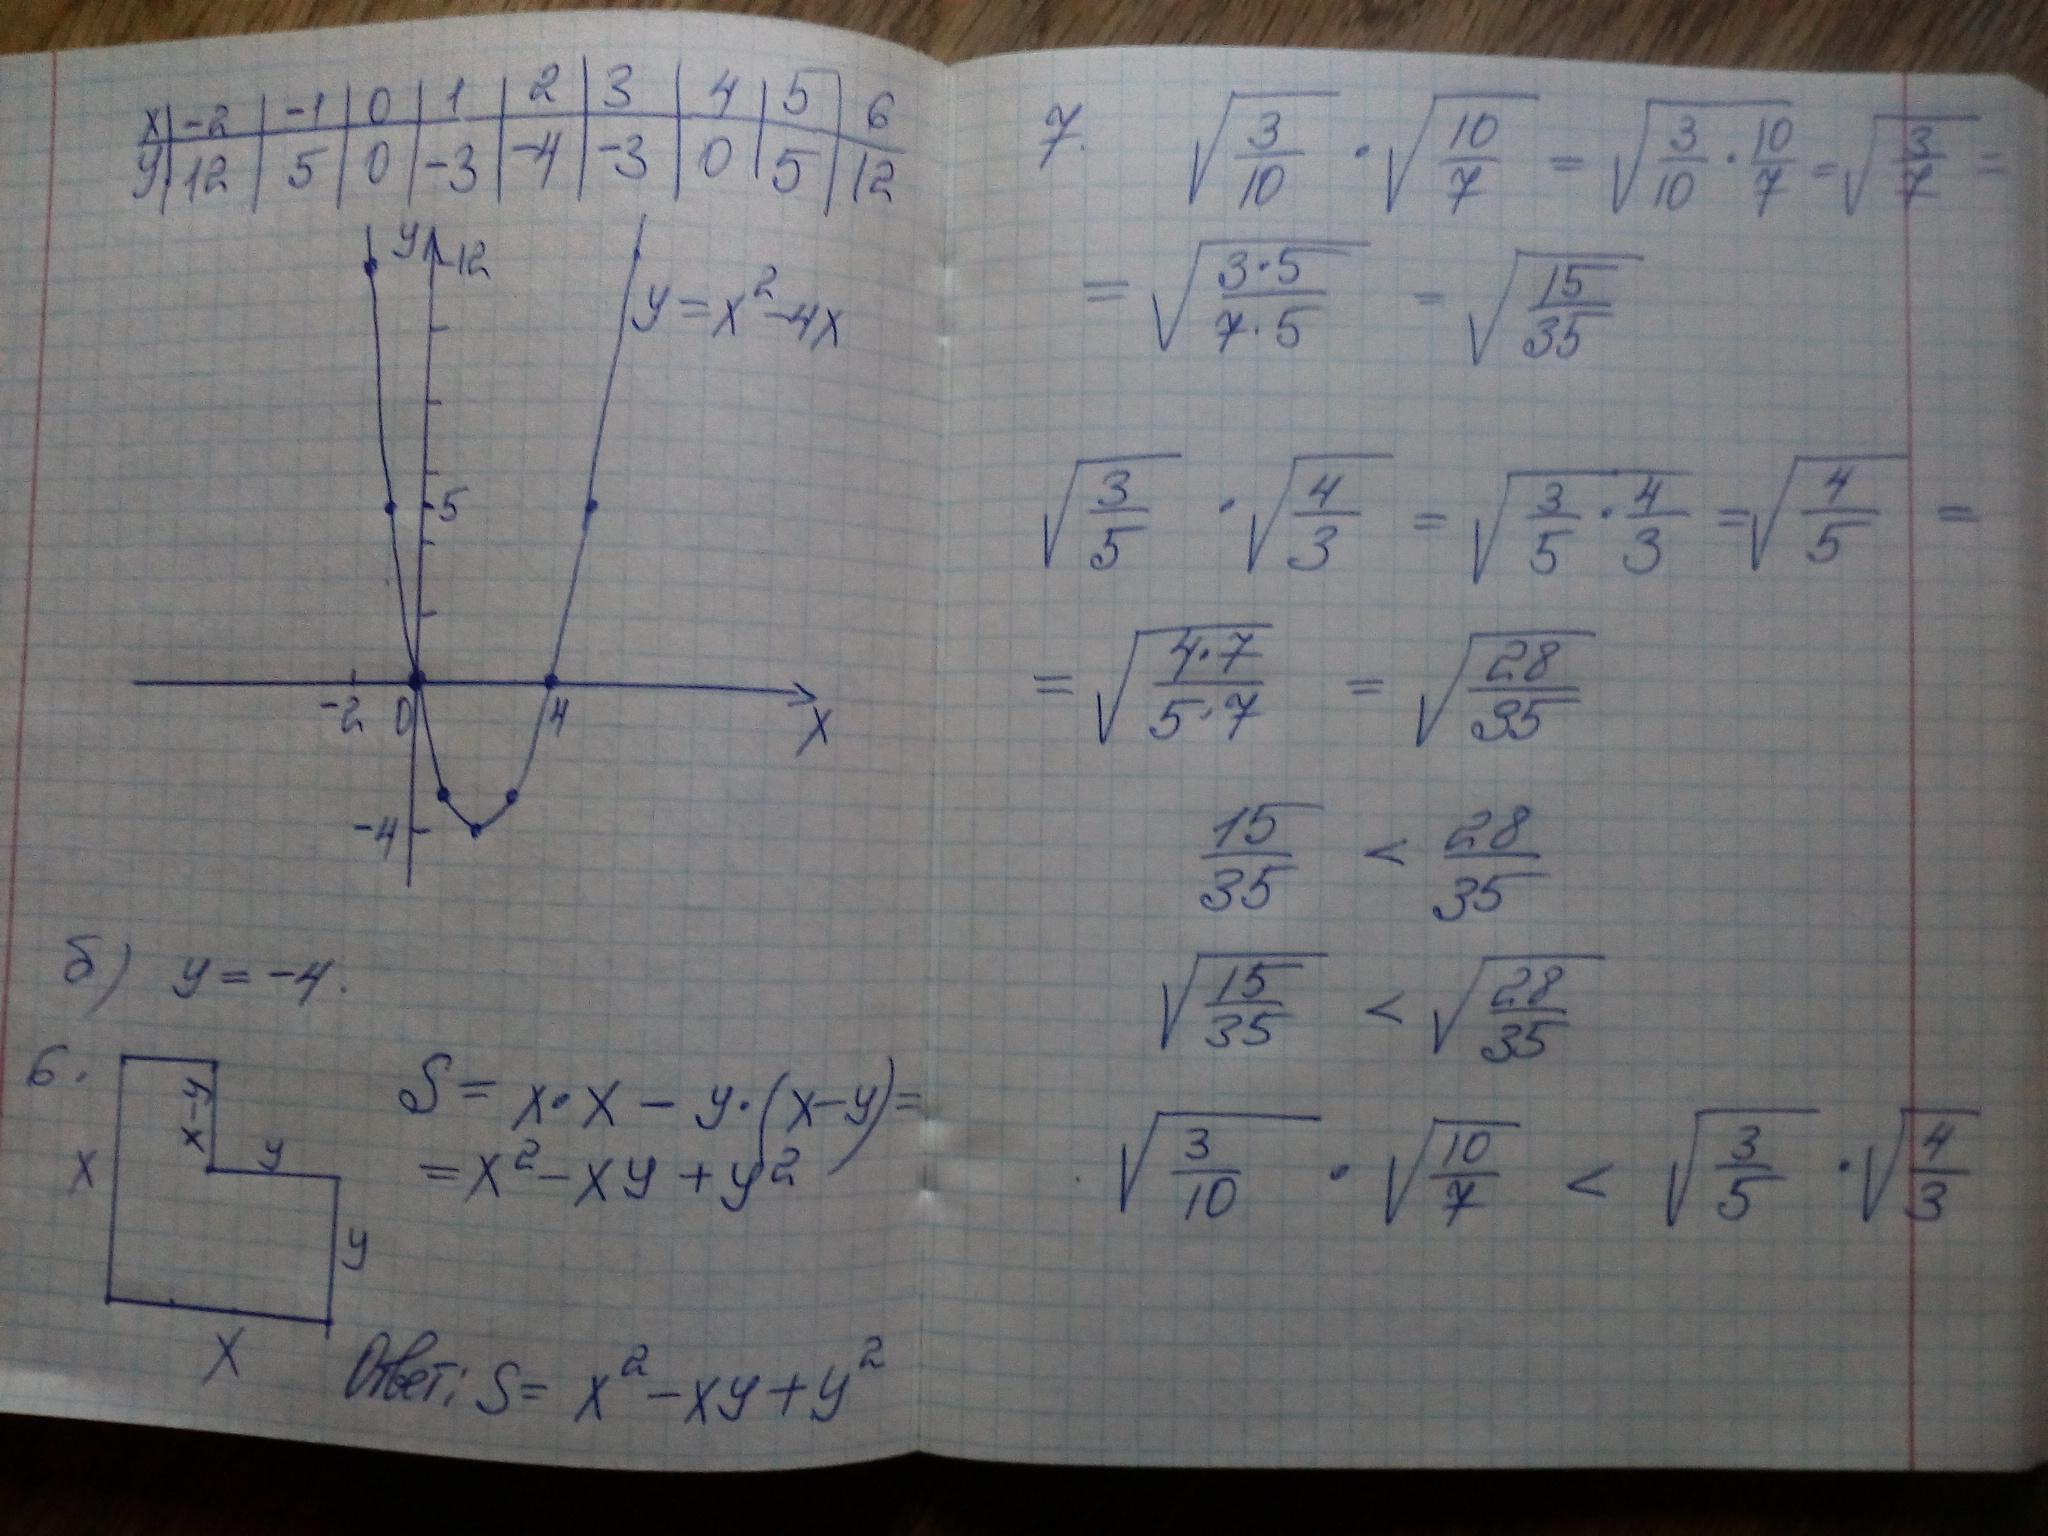 x | -2 | -1 | 0 | 1 | 2 | 3 | 4 | 5 | 6
y | 12 | 5 | 0 | -3 | -4 | -3 | 0 | 5 | 12
y
12
y = x² - 4x
5
-2 0 4
x
-4
б) y = -4.
6.
x-y
y
x
y
x
S = x·x - y·(x-y) =
= x² - xy + y²
Ответ: S = x² - xy + y²
7. √(3/10) · √(10/7) = √(3/10 · 10/7) = √(3/7) =
= √((3·5)/(7·5)) = √(15/35)
√(3/5) · √(4/3) = √(3/5 · 4/3) = √(4/5) =
= √((4·7)/(5·7)) = √(28/35)
15/35 < 28/35
√(15/35) < √(28/35)
√(3/10) · √(10/7) < √(3/5) · √(4/3)